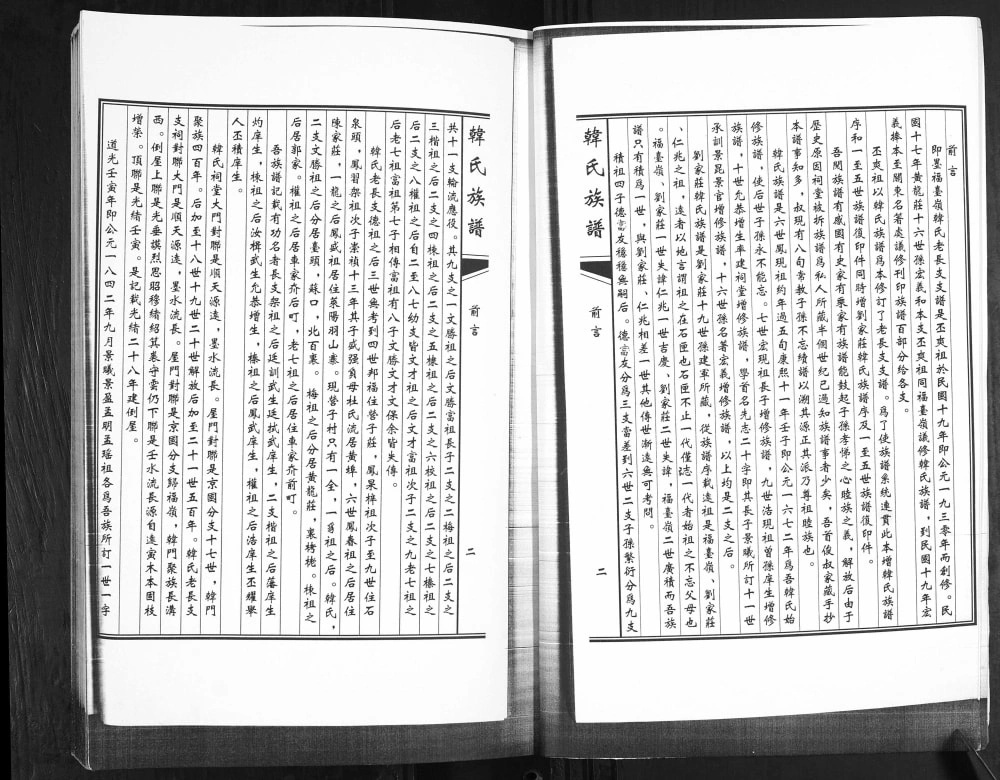 前言
即墨福臺嶺韓氏老長支支譜是丕爽祖於民國十九年即公元一九三零年而創修。民
國十七年黃龍莊十六世孫宏義和本支丕爽祖同福臺嶺議修韓氏族譜,到民國十九年宏
義捧本至關東名著處議修刊印族譜百部分給各支。
丕爽祖以韓氏族譜爲本修訂了老長支支譜。爲了使族譜系統連貫此本增韓氏族譜
序和一至五世族譜復印件同時增劉家莊韓氏族譜序及一至五世族譜復印件。
吾閱族譜有感國有史家有乘家有族譜能鼓起子孫孝悌之心睦族之義,解放后由于
歷史原因祠堂被拆族譜爲私人所藏半個世紀已過知族譜事者少矣,吾首俊叔家藏手抄
本譜事知多,叔現有八旬常教子孫不忘續譜以溯其源正其派乃尊祖睦族也。
韓氏族譜是六世鳳現祖約年過五旬康熙十一年壬子即公元一六七二年爲吾韓氏始
修族譜,使后世子孫永不能忘。七世宏現祖長子增修族譜,九世浩現祖曾孫庠生增修
族譜,十世允恭增生率建祠堂增修族譜,學首名先志二十字即其長子景曦所訂十一世
承訓景昆景官增修族譜,十六世孫名著宏義增修族譜,以上均是二支之后。
劉家莊韓氏族譜是劉家莊十九世孫建軍所藏,從族譜序載遠祖是福臺嶺、劉家莊
、仁兆之祖,遠者以地言謂祖之在石匣也石匣不止一代僅志一代者始祖之不忘父母也
。福臺嶺、劉家莊一世失諱仁兆一世吉慶、劉家莊二世失諱,福臺嶺二世廣積而吾族
譜只有積爲一世,與劉家莊、仁兆相差一世其他傳世漸遠無可考問。
積祖四子德富友穩穩無嗣后。德富友分爲三支富差到六世二支子孫繁衍分爲九支
韓氏族譜
前言
二
韓氏族譜
前言
二
共十一支輪流應役。其九支之一文勝祖之后文勝富祖長子二支之二梅祖之后二支之
三楷祖之后二支之四楝祖之后二支之五棟祖之后二支之六枝祖之后二支之七榛祖之
后二支之八權祖之后自二至八七幼支皆文才祖之后文才富祖次子二支之九老七祖之
后老七祖富祖第七子相傳富祖有八子文勝文才文保余皆失傳。
韓氏老長支德祖之后三世無考到四世邦福住營子莊,鳳果梓祖次子至九世住石
泉頭,鳳習架祖次子崇禎十三年其子威强負母杜氏流居黃埠,六世鳳春祖之后居住
陳家莊,一龍之后鳳威祖居住萊陽羽山寨。現營子村只有一全,一爲祖之后。韓氏,
二支文勝祖之后分居臺頭,蘇口,北百裏。 梅祖之后分居黃龍莊,裏栲栳。楝祖之
后居郭家。權祖之后居車家夼后町,老七祖之后居住車家夼前町。
吾族譜記載有功名者長支架祖之后廷訓武生廷拭武庠生,二支楷祖之后藩庠生
灼庠生,楝祖之后汝楫武生允恭增生,榛祖之后鳳武庠生,權祖之后浩庠生丕耀舉
人丕積庠生。
韓氏祠堂大門對聯是順天源遠,墨水流長。屋門對聯是京國分支十七世,韓門
聚族四百年。后加至十八世十九世二十世解放后加至二十一世五百年。韓氏老長支
支祠對聯大門是順天源遠,墨水流長。屋門對聯是京國分支歸福嶺,韓門聚族長溝
西。倒屋上聯是光垂謨烈思昭穆緒紹箕裘守雲仍下聯是壬水流長源自遠寅木本固枝
增榮。頂聯是光緒壬寅。是記載光緒二十八年建倒屋。
道光壬寅年即公元一八四二年九月景曦景盈孟玥孟瑶祖各爲吾族所訂一世一字